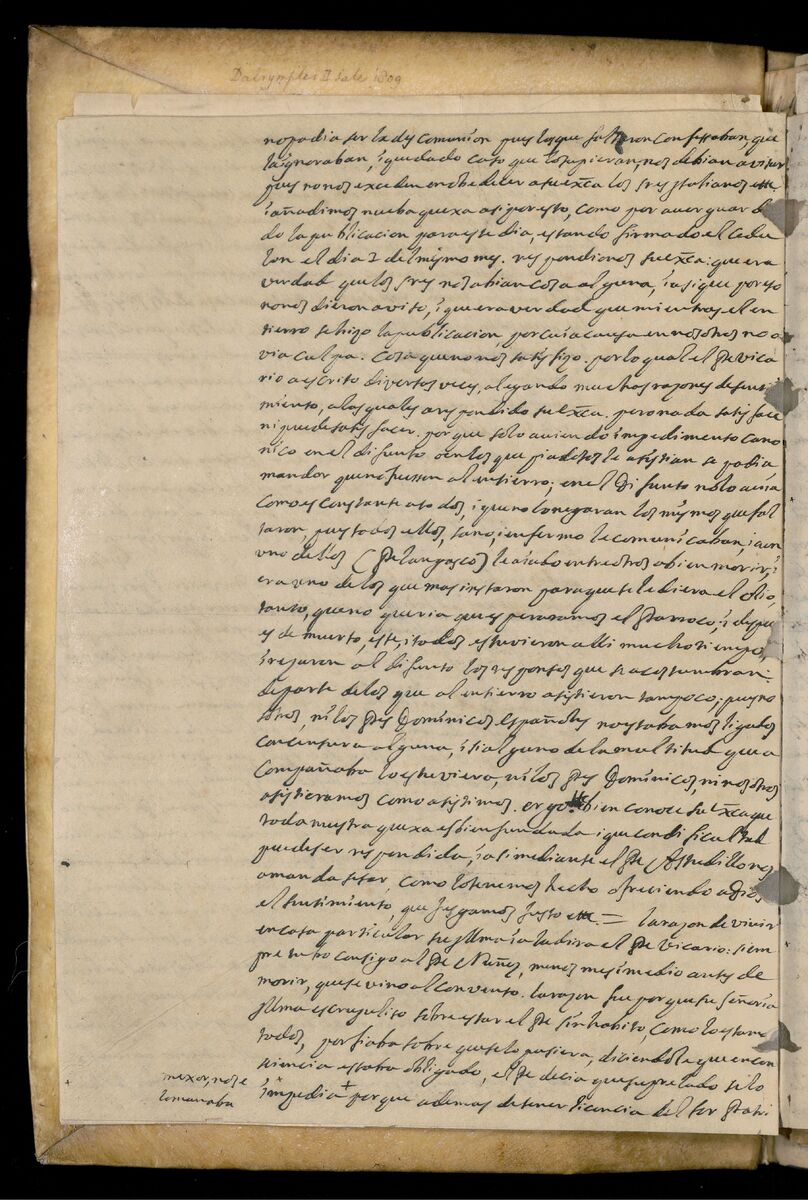 Dalrymples II Sale 1809
no podia ser la descomunion pues los que faltaron confessaban que
la ignoraban, i que dado caso que lo supieran, nos debian avisar
pues no nos exceden en obedecer a su exca los sres Italianos etc
i añadimos nueba quexa asi por esto, como por aver guarda
do la publicacion para este dia, estando firmado el cedu
lon el dia 2 del mismo mes. respondionos su exca: que era
verdad que los sres no sabian cosa alguna, i asi que por eso
no nos dieron aviso, i que era verdad que mientras el en
tierro se hizo la publicacion, por cuia causa en nosotros no a
via culpa. cosa que no nos satisfizo. por lo qual el Pe vica
rio a escrito diversas veces, alegando muchas razones de senti
miento, a las quales a respondido su exca. pero nada satisface
ni puede satisfacer. porque solo aviendo impedimento cano
nico en el difunto o en los que piadosos le asistian se podia
mandar que no fuessen al entierro; en el difunto no lo avia
como es constante a todos, i que no lo negaran los mismos que fal
taron, pues todos ellos, sano, i enfermo le comunicaban, i aun
uno dellos (Pe Langasco) le aiudo entre otros a bien morir, i
era uno de los que mas instaron para que se le diera el Olio,
tanto, que no queria que esperaramos el Parroco; i despu
es de muerto, este, i todos estuvieron alli mucho tiempo,
i rezaron al difunto los responsos que se acostumbran.
de parte de los que al entierro asistieron tampoco; pues no
sotros, ni los Pes Dominicos Españoles no estabamos ligados
con censura alguna, i si alguno de la multitud que a
compañaba lo estuviera, ni los Pes Dominicos, ni nosotros
asistieramos como asistimos. ergo bien conoce su Exca que
toda nuestra quexa es bien fundada i que con dificultad
puede ser respondida, i asi mediante el Pe Astudillo nos
a manda sesar, como lo tenemos hecho ofreciendo a Dios
el sentimiento, que juzgamos justo etc. = La razon de vivir
en casa particular su Illma ia la dira el Pe Vicario: siem
pre tubo consigo al Pe Nuñez, menos mes i medio antes de
morir, que se vino al convento. la razon fue porque su señoria
Illma escrupuliso sobre estar el Pe sin habito, como lo estamos
todos, porfiaba sobre que se lo pusiera, diciendole que en con
siencia estaba obligado, el Pe decia que su prelado se lo
impedia + porque ademas de tener licencia del sor Patri
mexor, no se
lo mandaba